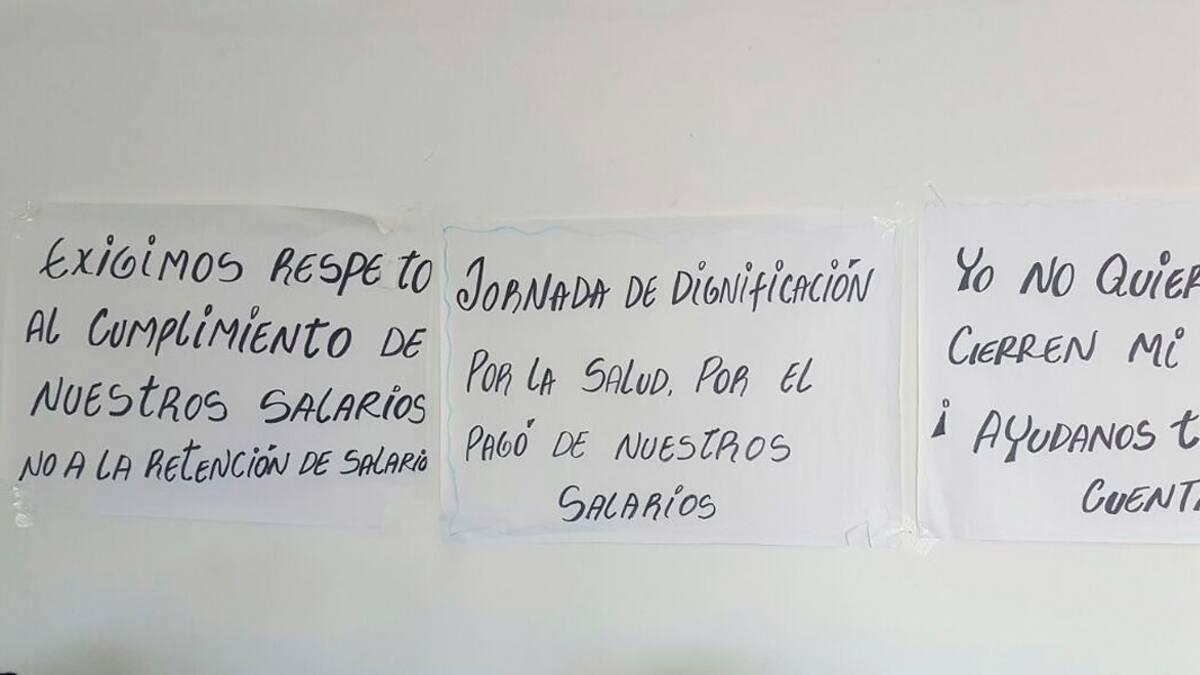 EXIGIMOS RESPETO
AL CUMPLIMIENTO DE
NUESTROS SALARIOS
NO A LA RETENCIÓN DE SALARIO
JORNADA DE DIGNIFICACIÓN
POR LA SALUD. POR EL
PAGÓ DE NUESTROS
SALARIOS
YO NO
CIERREN MI
¡AYUDANOS